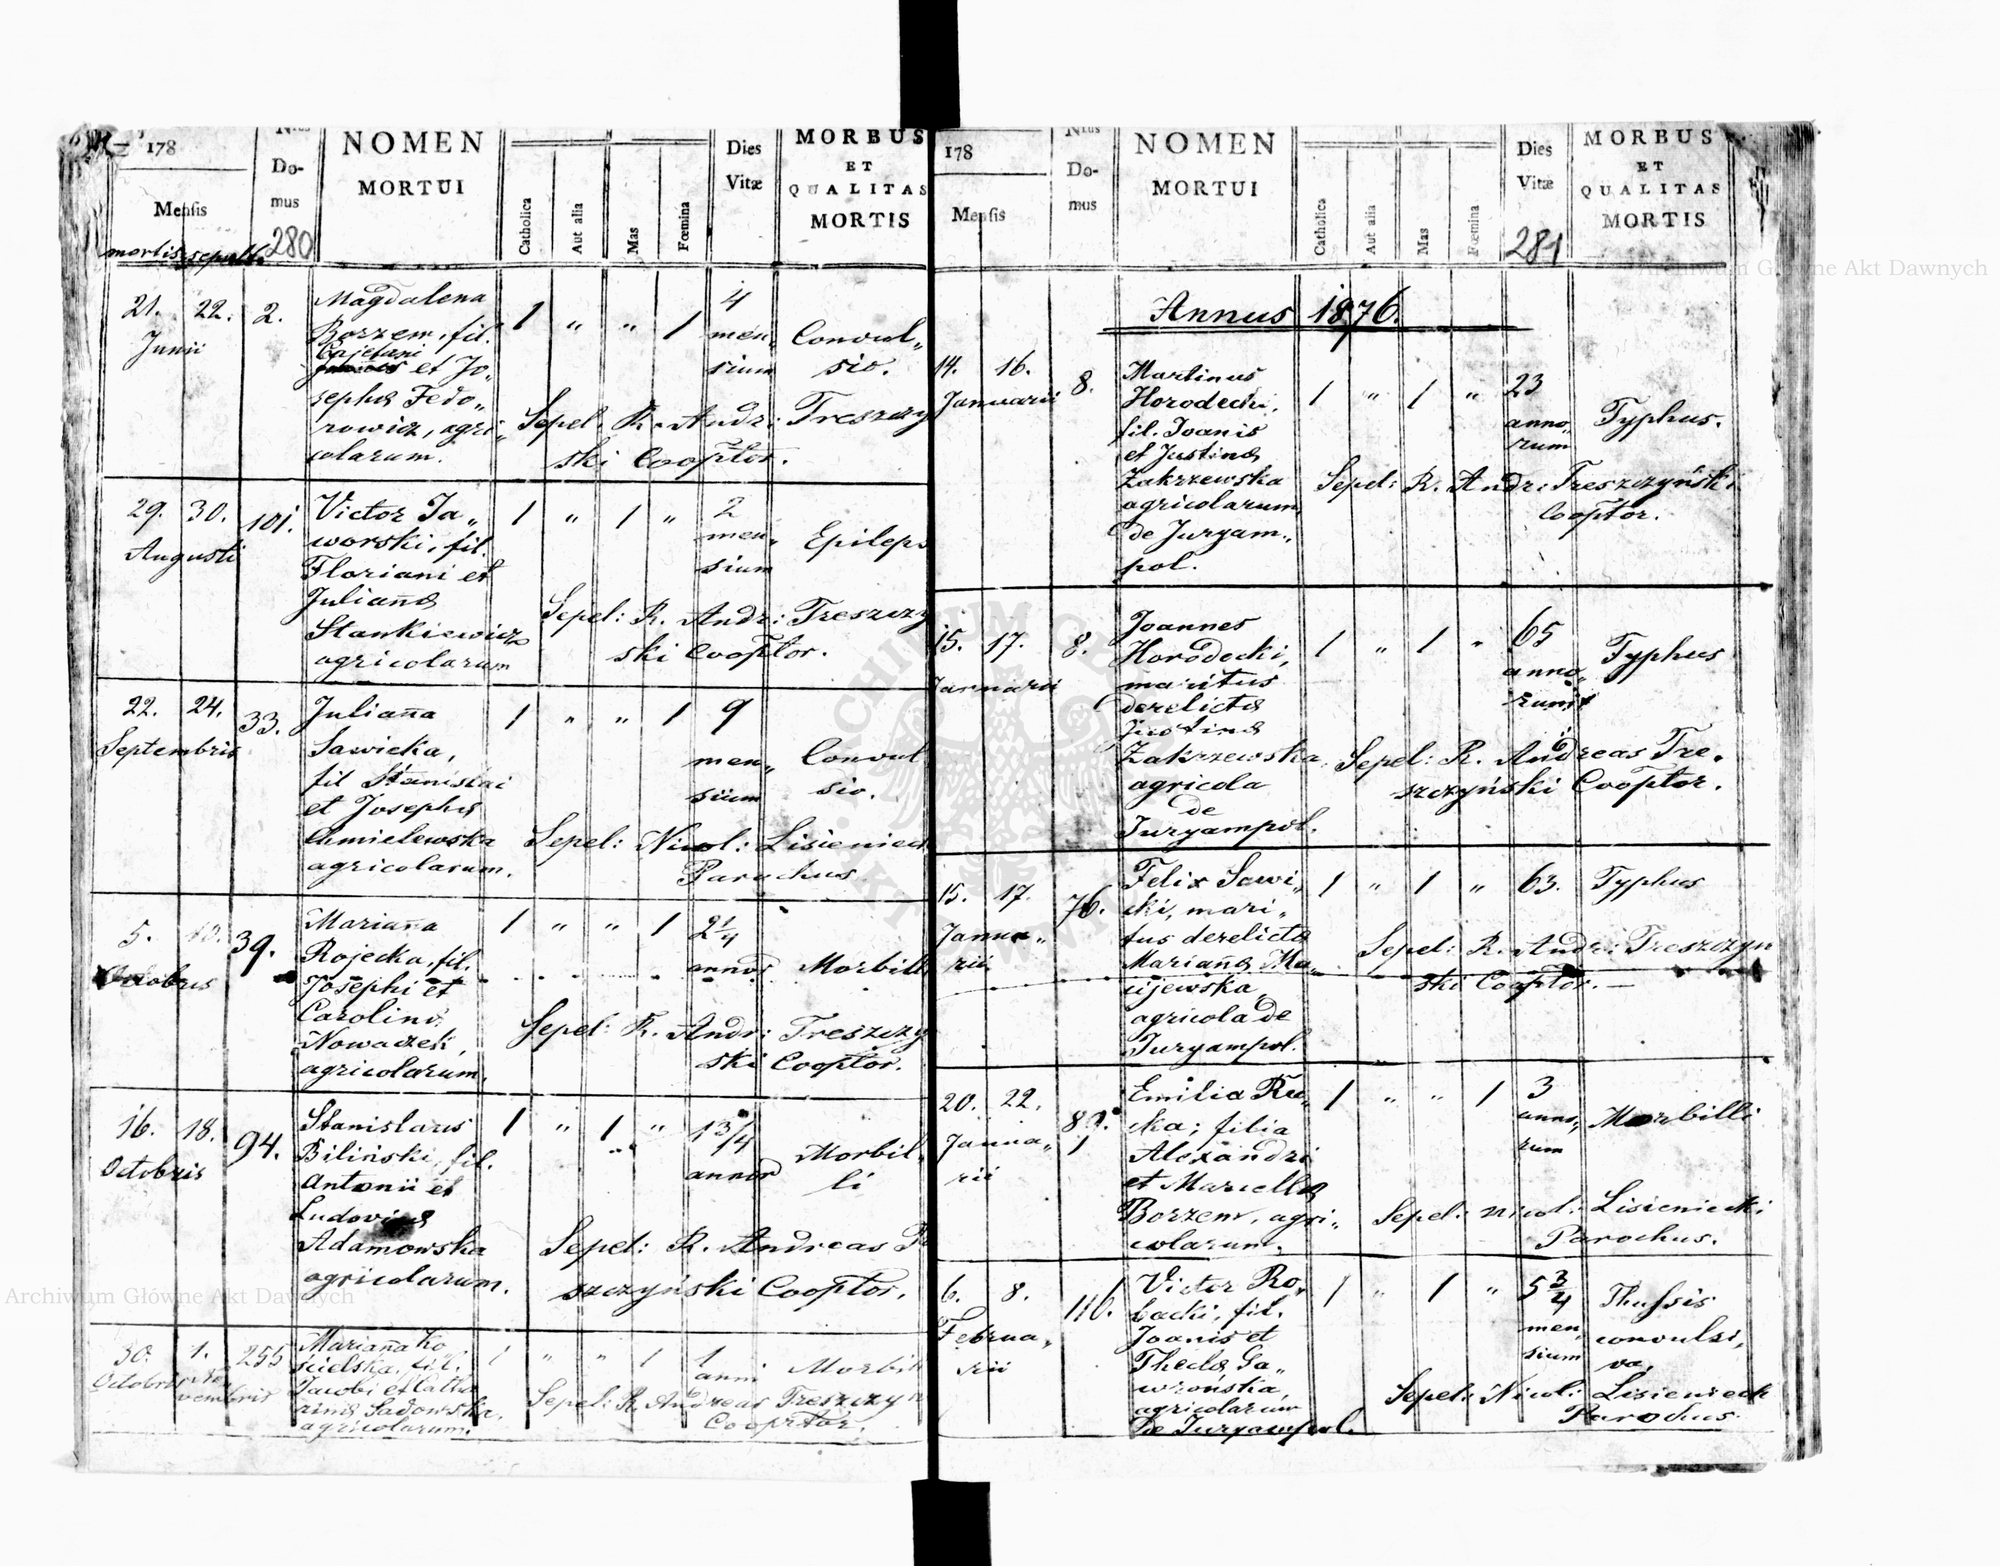 178
Nrus
Do-
mus
NOMEN
MORTUI
Catholica
Aut alia
Mas
Fœmina
Dies
Vitæ
MORBUS
ET
QUALITAS
MORTIS
Mensis
mortis sepult.
280
21. 22. 2.
Junii
Magdalena
Borzem, fil.
Cajetani
et Jo„
sepha Fedo„
rowicz, agri„
colarum.
1 „ „ 1
4
men„
sium
Convul„
sio.
Sepel: R. Andr: Treszczy
ski Cooptor.
29. 30. 101.
Augusti
Victor Ja„
worski, fil.
Floriani et
Julianna
Stankiewicz
agricolarum
1 „ 1 „
2
men„
sium
Epileps
Sepel: R. Andr: Treszczy
ski Cooptor.
22. 24. 33.
Septembris
Julianna
Sawicka,
fil Stanislai
et Josepha
Chmielewska
agricolarum.
1 „ „ 1
9
men„
sium
Convul
sio.
Sepel: Nicol: Lisienieck
Parochus
5. 39.
Octobris
Marianna
Rojecka, fil.
Josephi et
Carolina
Nowaczek,
agricolarum.
1 „ „ 1
2 1/4
annor
Morbilli
Sepel: R. Andr: Treszczy
ski Cooptor.
16. 18. 94.
Octobris
Stanislaus
Biliński, fil.
Antonii et
Ludovica
Adamowska
agricolarum.
1 „ 1 „
1 3/4
annor
Morbil„
li
Sepel: R. Andreas
szczyński Cooptor.
30. 1. 255
Octobris
vembris
Marianna Ko
scielska, fil.
Jacobi et Catha
rina Sadowska.
agricolarum.
1 „ „ 1
1
anni
Morbil
Sepel: R. Andreas Treszczyn
Cooptor.
178
Nrus
Do-
mus
NOMEN
MORTUI
Catholica
Aut alia
Mas
Fœmina
Dies
Vitæ
MORBUS
ET
QUALITAS
MORTIS
Mensis
281
Annus 1876.
14. 16. 8.
Januarii
Martinus
Horodecki,
fil. Joanis
et Justina
Zakrzewska
agricolarum,
de Juryam„
pol.
1 „ 1 „
23
anno„
rum
Typhus.
Sepel: R. Andr: Treszczyński
Cooptor.
15. 17. 8.
Januarii
Joannes
Horodecki,
maritus
derelicta
Justina
Zakrzewska,
agricola
de
Juryampol.
1 „ 1 „
65
anno„
rum
Typhus
Sepel: R. Andreas Tre„
szczyński Cooptor.
15. 17. 76.
Janua„
rii
Felix Sawi„
cki, mari„
tus derelicta
Marianna Ma„
cijewska,
agricola de
Juryampol.
1 „ 1 „
63.
Typhus
Sepel: R. Andr: Treszczyn
ski Cooptor.—
20. 22.
Janua„
rii
Emilia Ru„
cka; filia
Alexandri
et Marcella
Borzem, agri„
colarum.
1 „ „ 1
3
anno„
rum
Morbilli
Sepel: Nicol: Lisieniecki
Parochus.
6. 8. 116.
Februa„
rii
Victor Ro„
backi, fil.
Joanis et
Thecla Ga„
wrońska,
agricolarum
De Juryampol.
1 „ 1 „
5 3/4
men„
sium
Thussis
convulsi„
va.
Sepel: Nicol: Lisienieck
Parochus.
Archiwum Główne Akt Dawnych
Archiwum Główne Akt Dawnych